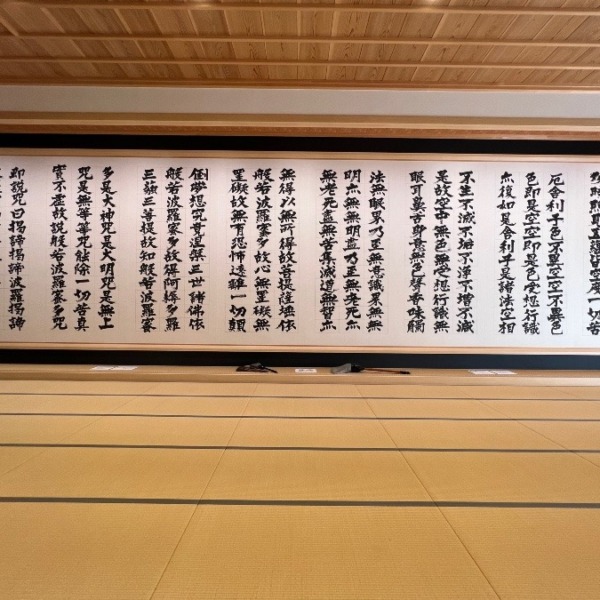 五蘊皆空度一切苦
厄舍利子色不異空空不異色
色即是空空即是色受想行識
亦復如是舍利子是諸法空相
不生不滅不垢不淨不增不減
是故空中無色無受想行識
眼耳鼻舌身意無色聲香味觸
法無眼界乃至無意識界無無
明亦無無明盡乃至無老死亦
無老死盡無苦集滅道無智亦
無得以無所得故菩提薩埵依
般若波羅蜜多故心無罣礙無
罣礙故無有恐怖遠離一切顛
倒夢想究竟涅槃三世諸佛依
般若波羅蜜多故得阿耨多羅
三藐三菩提故知般若波羅蜜
多是大神咒是大明咒是無上
咒是無等等咒能除一切苦真
實不虛故說般若波羅蜜多咒
即說咒曰揭諦揭諦波羅揭諦